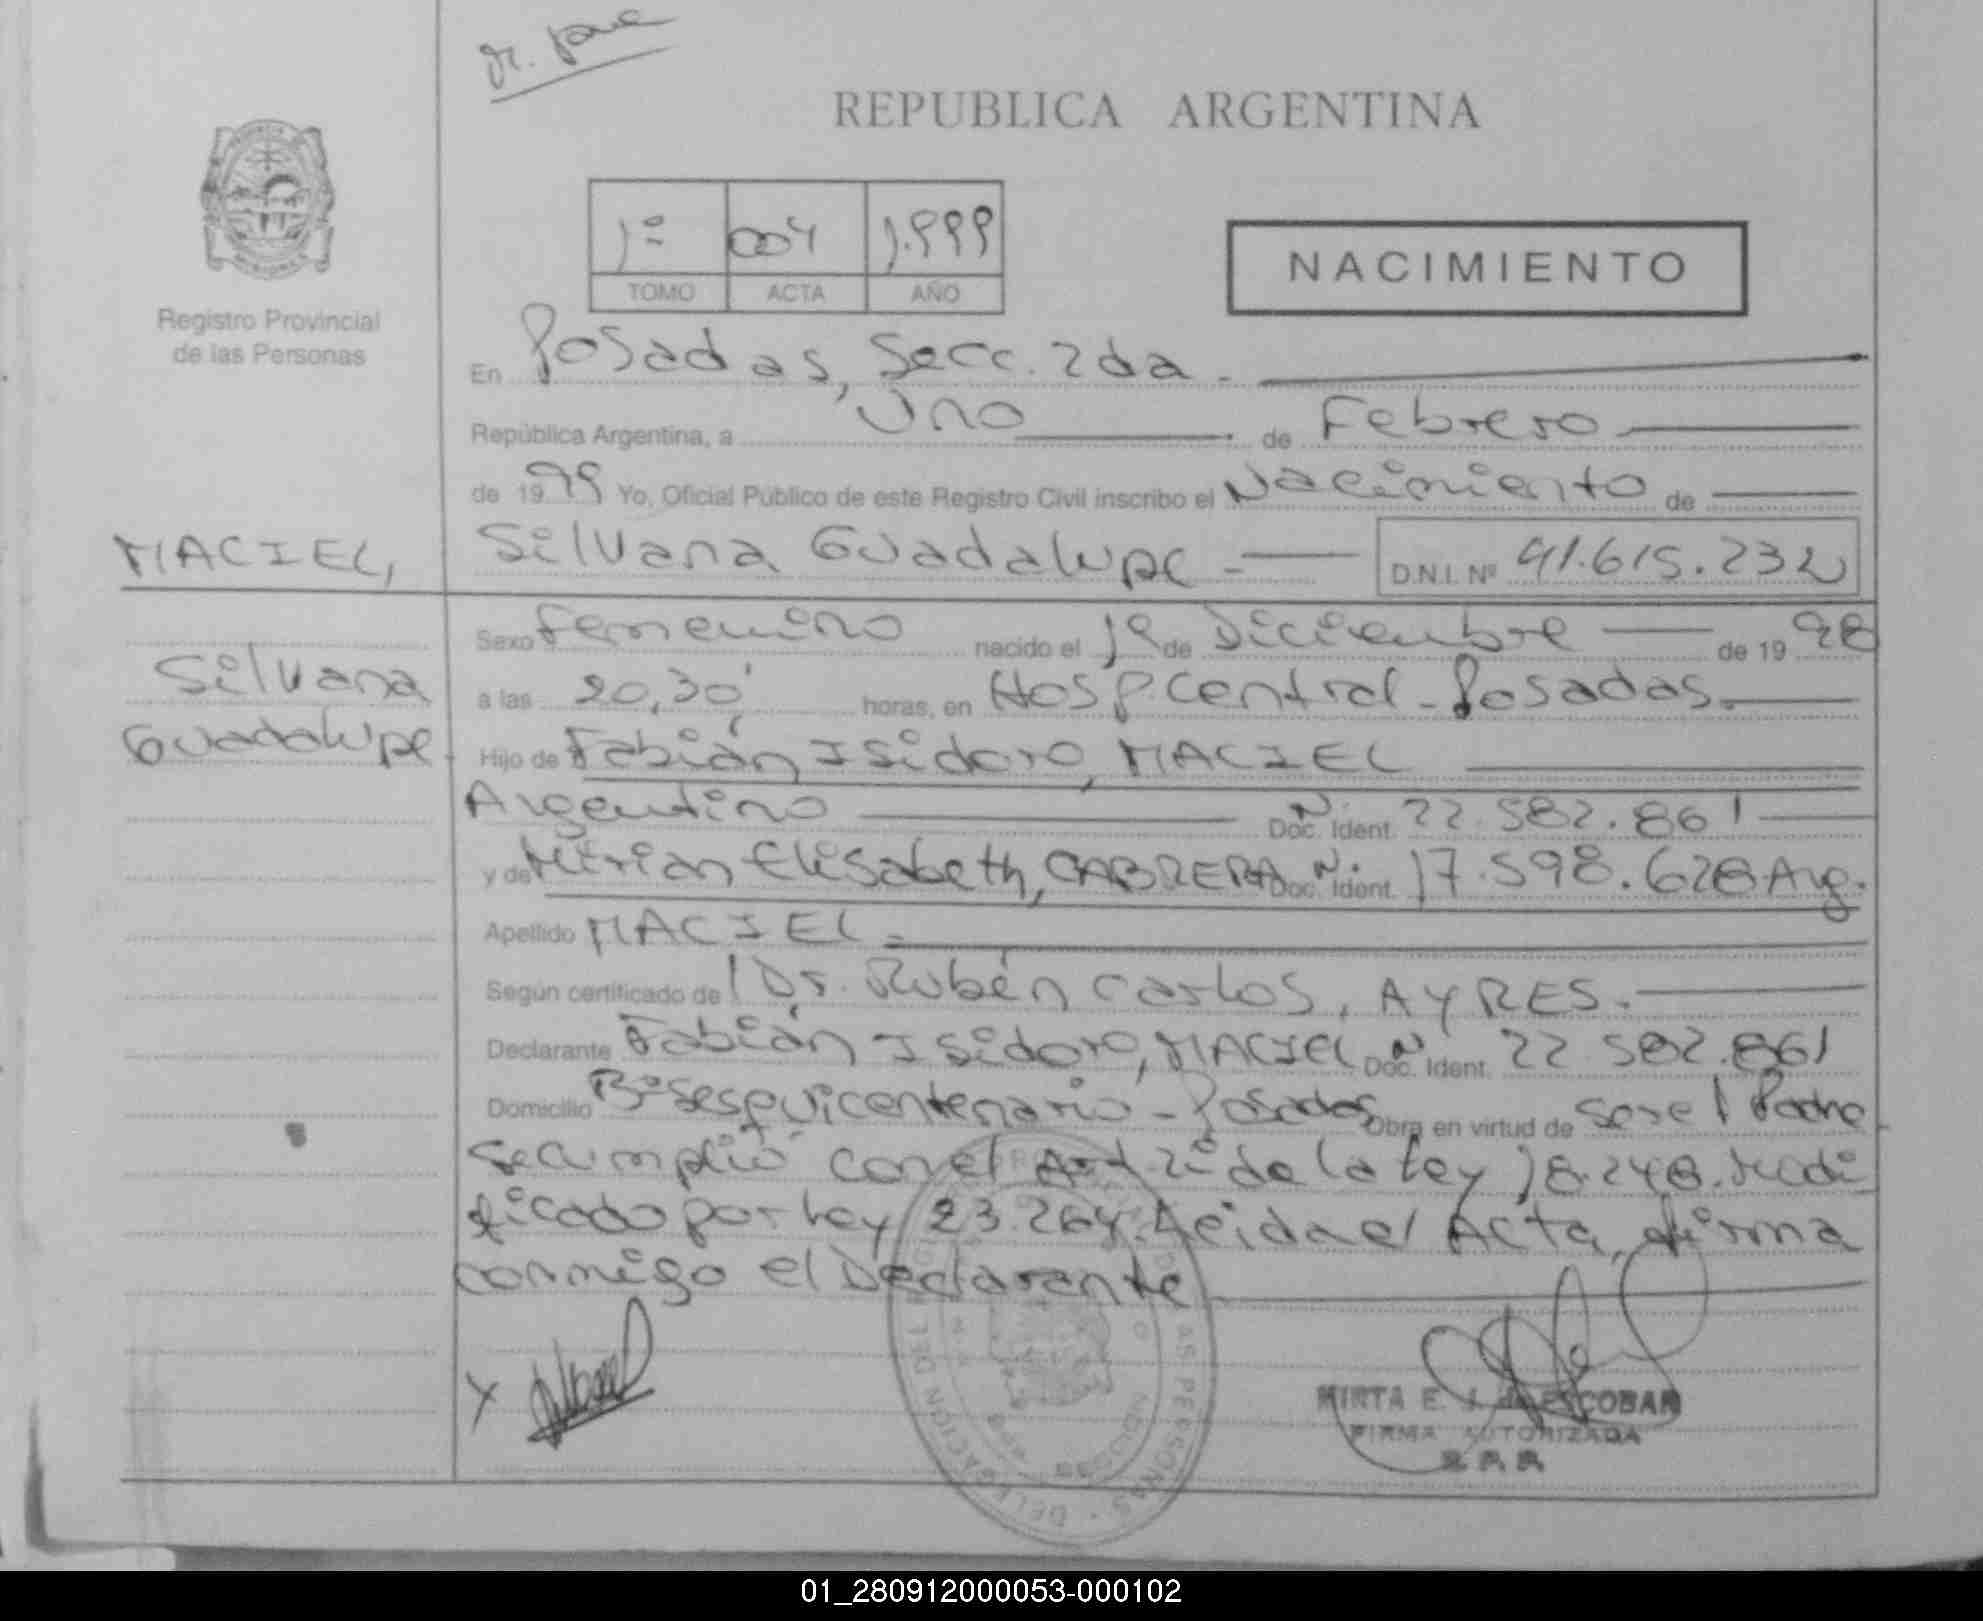 REPUBLICA ARGENTINA
Registro Provincial
de las Personas
1º 004 1.999
TOMO ACTA AÑO
NACIMIENTO
En Posadas, Secc. 2da.
República Argentina, a Uno de Febrero
de 1999 Yo, Oficial Público de este Registro Civil inscribo el Nacimiento de
MACIEL, Silvana Guadalupe D.N.I. Nº 41.615.232
Silvana
Guadalupe
Sexo Femenino nacido el 1º de Diciembre de 1998
a las 20,30' horas, en Hosp. Central - Posadas.
Hijo de Fabián Isidoro, MACIEL
Argentino Doc. Ident. N. 22.582.861
y de Mirian Elisabeth, CABRERA Doc. Ident. N. 17.598.628 Arg.
Apellido MACIEL.
Según certificado de l Dr. Rubén Carlos, AYRES.
Declarante Fabián Isidoro, MACIEL Doc. Ident. N 22.582.861
Domicilio Bº Sesquicentenario - Posadas Obra en virtud de ser el Padre
Se cumplió con el Art. 2º de la Ley 18.248. Modi
ficado por Ley 23.264. Leida el Acta, firma
conmigo el Declarante
X
MIRTA E. J. de ESCOBAR
FIRMA AUTORIZADA
R.P.P.
01_280912000053-000102